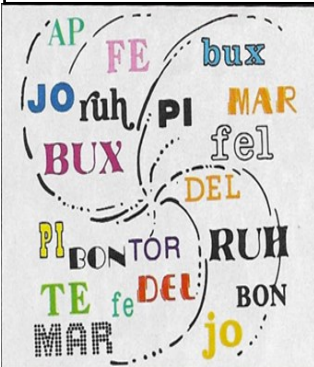 AP
FE
bux
JO ruh PI MAR
fel
BUX
DEL
PI BON TOR RUH
TE fe DEL BON
MAR jo